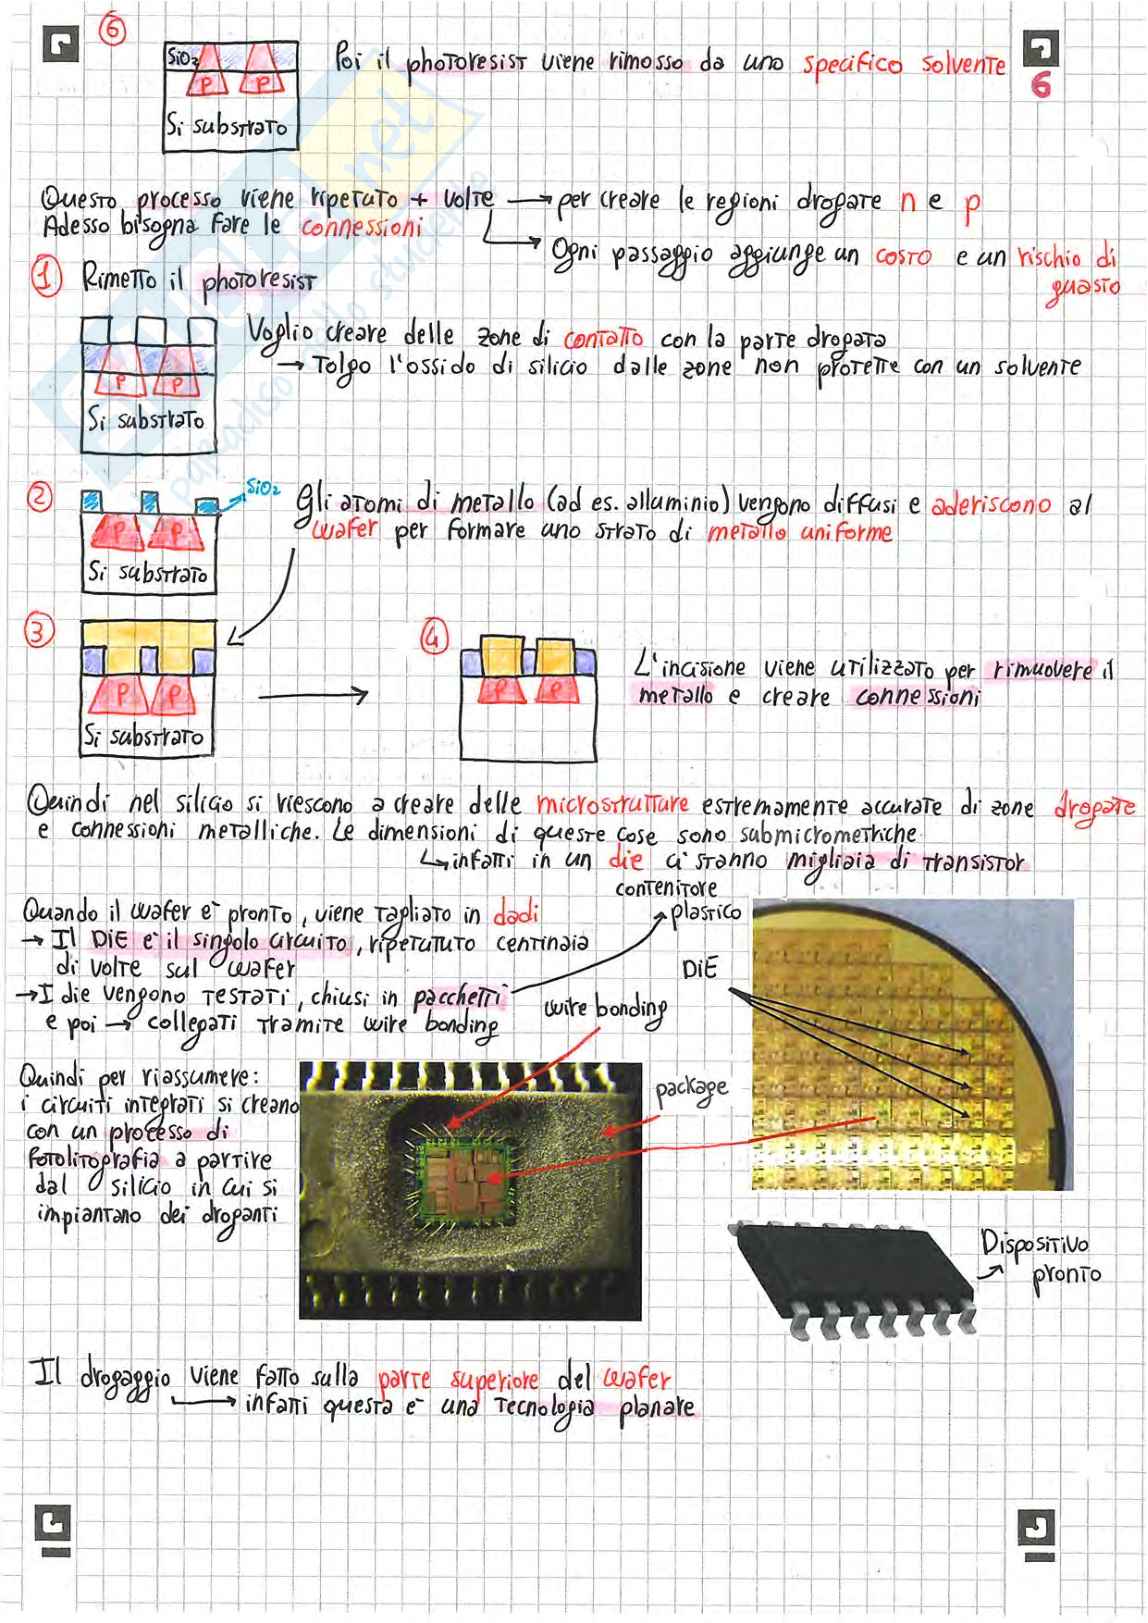 6
SiO2
P P
Si substrato
Poi il photoresist viene rimosso da uno specifico solvente
6
Questo processo viene ripetuto + volte → per creare le regioni drogate n e p
Adesso bisogna fare le connessioni
→ Ogni passaggio aggiunge un costo e un rischio di
guasto
1 Rimetto il photoresist
P P
Si substrato
Voglio creare delle zone di contatto con la parte drogata
→ Tolgo l'ossido di silicio dalle zone non protette con un solvente
2
SiO2
P P
Si substrato
Gli atomi di metallo (ad es. alluminio) vengono diffusi e aderiscono al
wafer per formare uno strato di metallo uniforme
3
P P
Si substrato
4
P P
L'incisione viene utilizzato per rimuovere il
metallo e creare connessioni
Quindi nel silicio si riescono a creare delle microstrutture estremamente accurate di zone drogate
e connessioni metalliche. Le dimensioni di queste cose sono submicrometriche
↳ infatti in un die ci stanno migliaia di transistor
Quando il wafer è pronto, viene tagliato in dadi
→ Il DiE è il singolo circuito, riperututo centinaia
di volte sul wafer
→ I die vengono testati, chiusi in pacchetti
e poi → collegati tramite wire bonding
contenitore
plastico
DiE
wire bonding
package
Quindi per riassumere:
i circuiti integrati si creano
con un processo di
fotolitografia a partire
dal silicio in cui si
impiantano dei droganti
Dispositivo
pronto
Il drogaggio viene fatto sulla parte superiore del wafer
→ infatti questa è una tecnologia planare